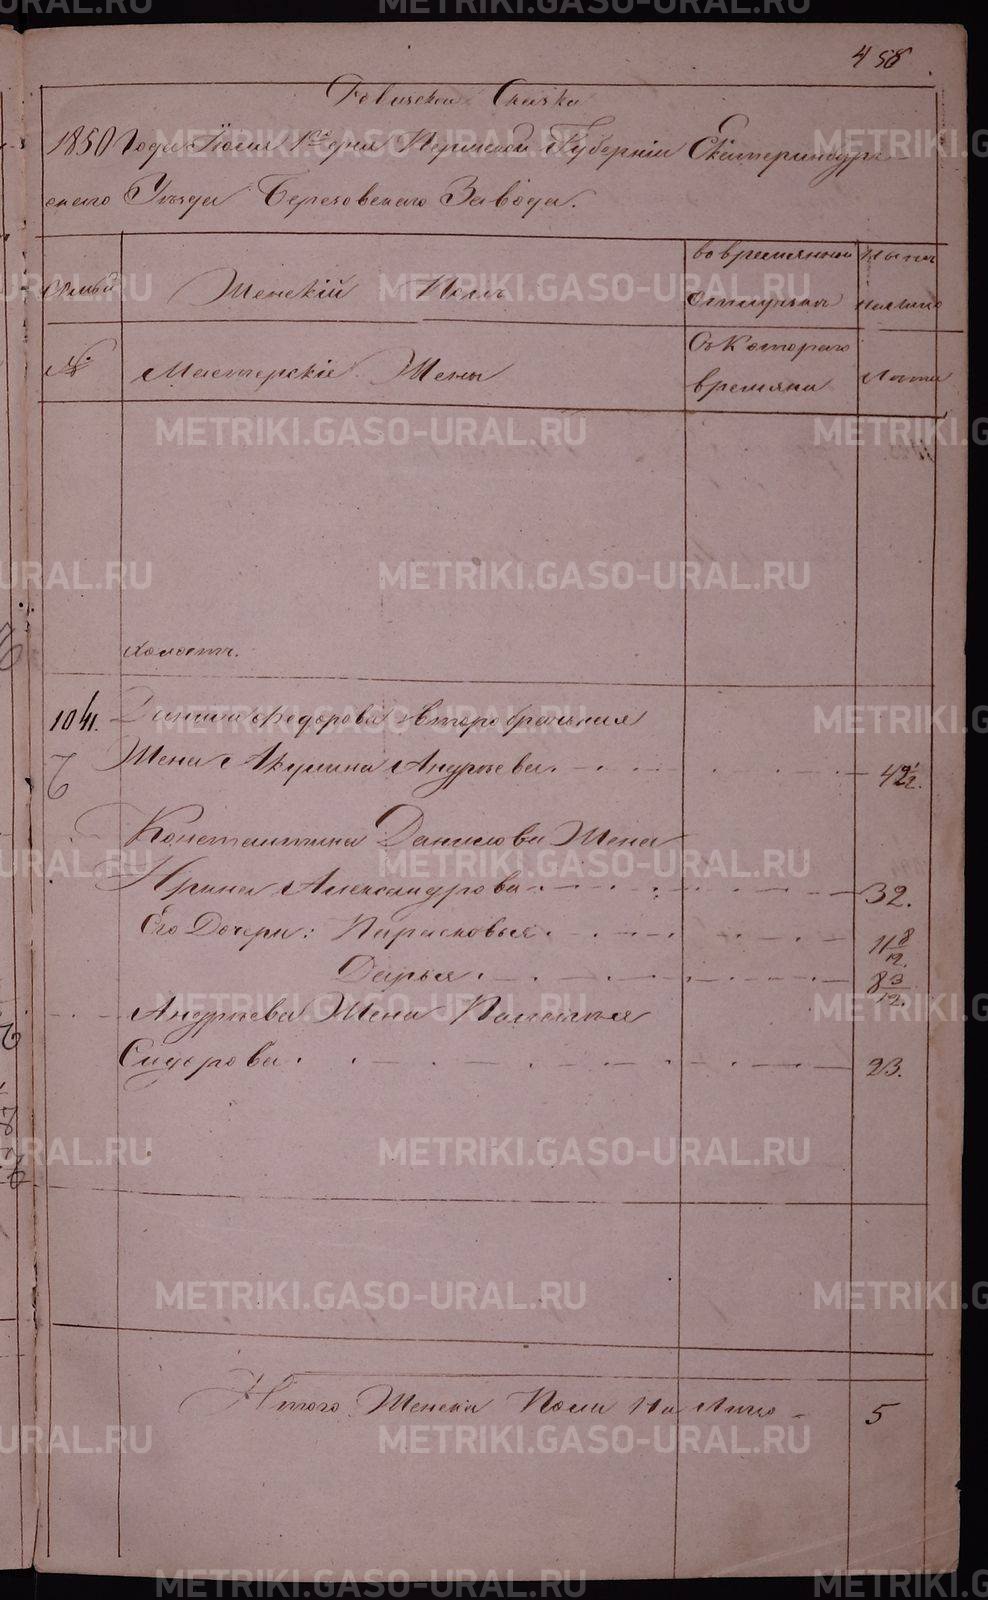 458
Ревизская Сказка
1850 Года Июля 1го дня Пермской Губернии Екатеринбург-
скаго Уезда Березовскаго Завода.
Семьи
Женскій Полъ
во времянной
отлучкѣ
Нынѣ
налицо
№
Мастерскіе Жены
Съ Котораго
времяни
Лѣта
холостъ.
1041.
Данила Федорова второбрачная
Жена Акулина Андреева.
Константина Данилова Жена
Ирина Александрова
32.
Его Дочери: Парасковья
11 8/12.
Дарья.
8 3/12.
Андреева Жена Пелагея
Сидорова.
23.
Итого Женска Пола На Лицо
5
METRIKI.GASO-URAL.RU